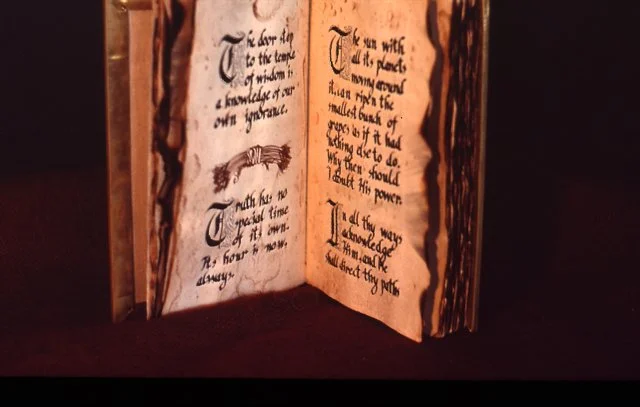 The door step
to the temple
of wisdom is
a knowledge of our
own ignorance.
Truth has no
special time
of its own.
Its hour is now,
always.
The sun with
all its planets
moving around
it, can ripen the
smallest bunch of
grapes as if it had
nothing else to do.
Why then should
I doubt His power.
In all thy ways
acknowledge
Him, and He
shall direct thy paths